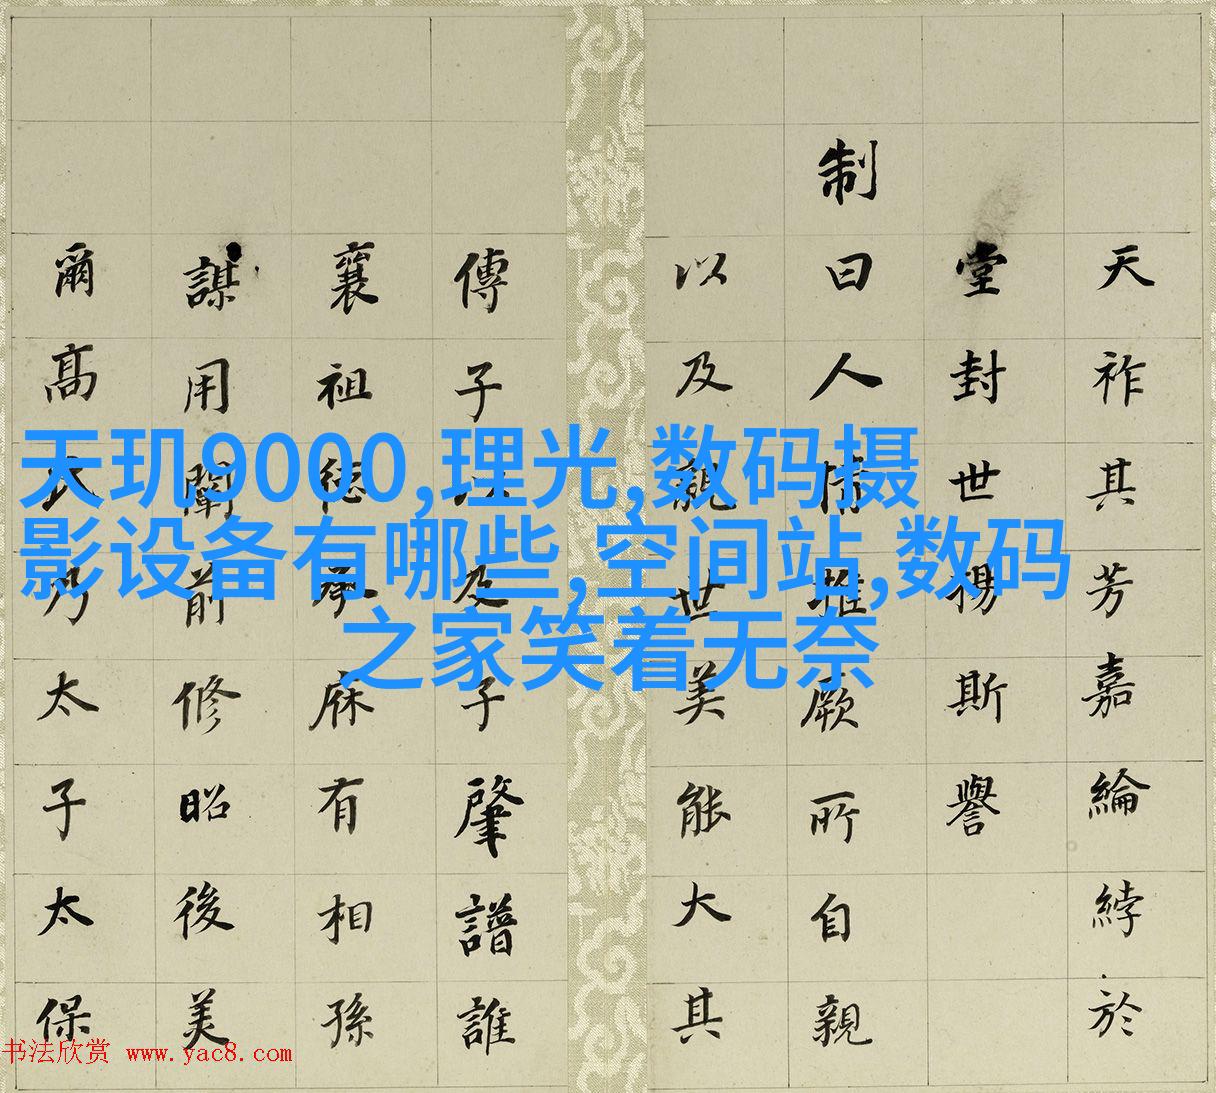 天玑9000,理光,数码摄
影设备有哪些,空间站,数码
之家笑着无奈
天祚其芳嘉綸綍於
堂封世揚斯譽
制曰人情推厥所自親
以及親世美能大其
傳子以及子肇譜誰
襄祖徳承庥有相孫
謀用闡前修昭後美
爾高氏乃太子太保
书法欣赏 www.yac8.com